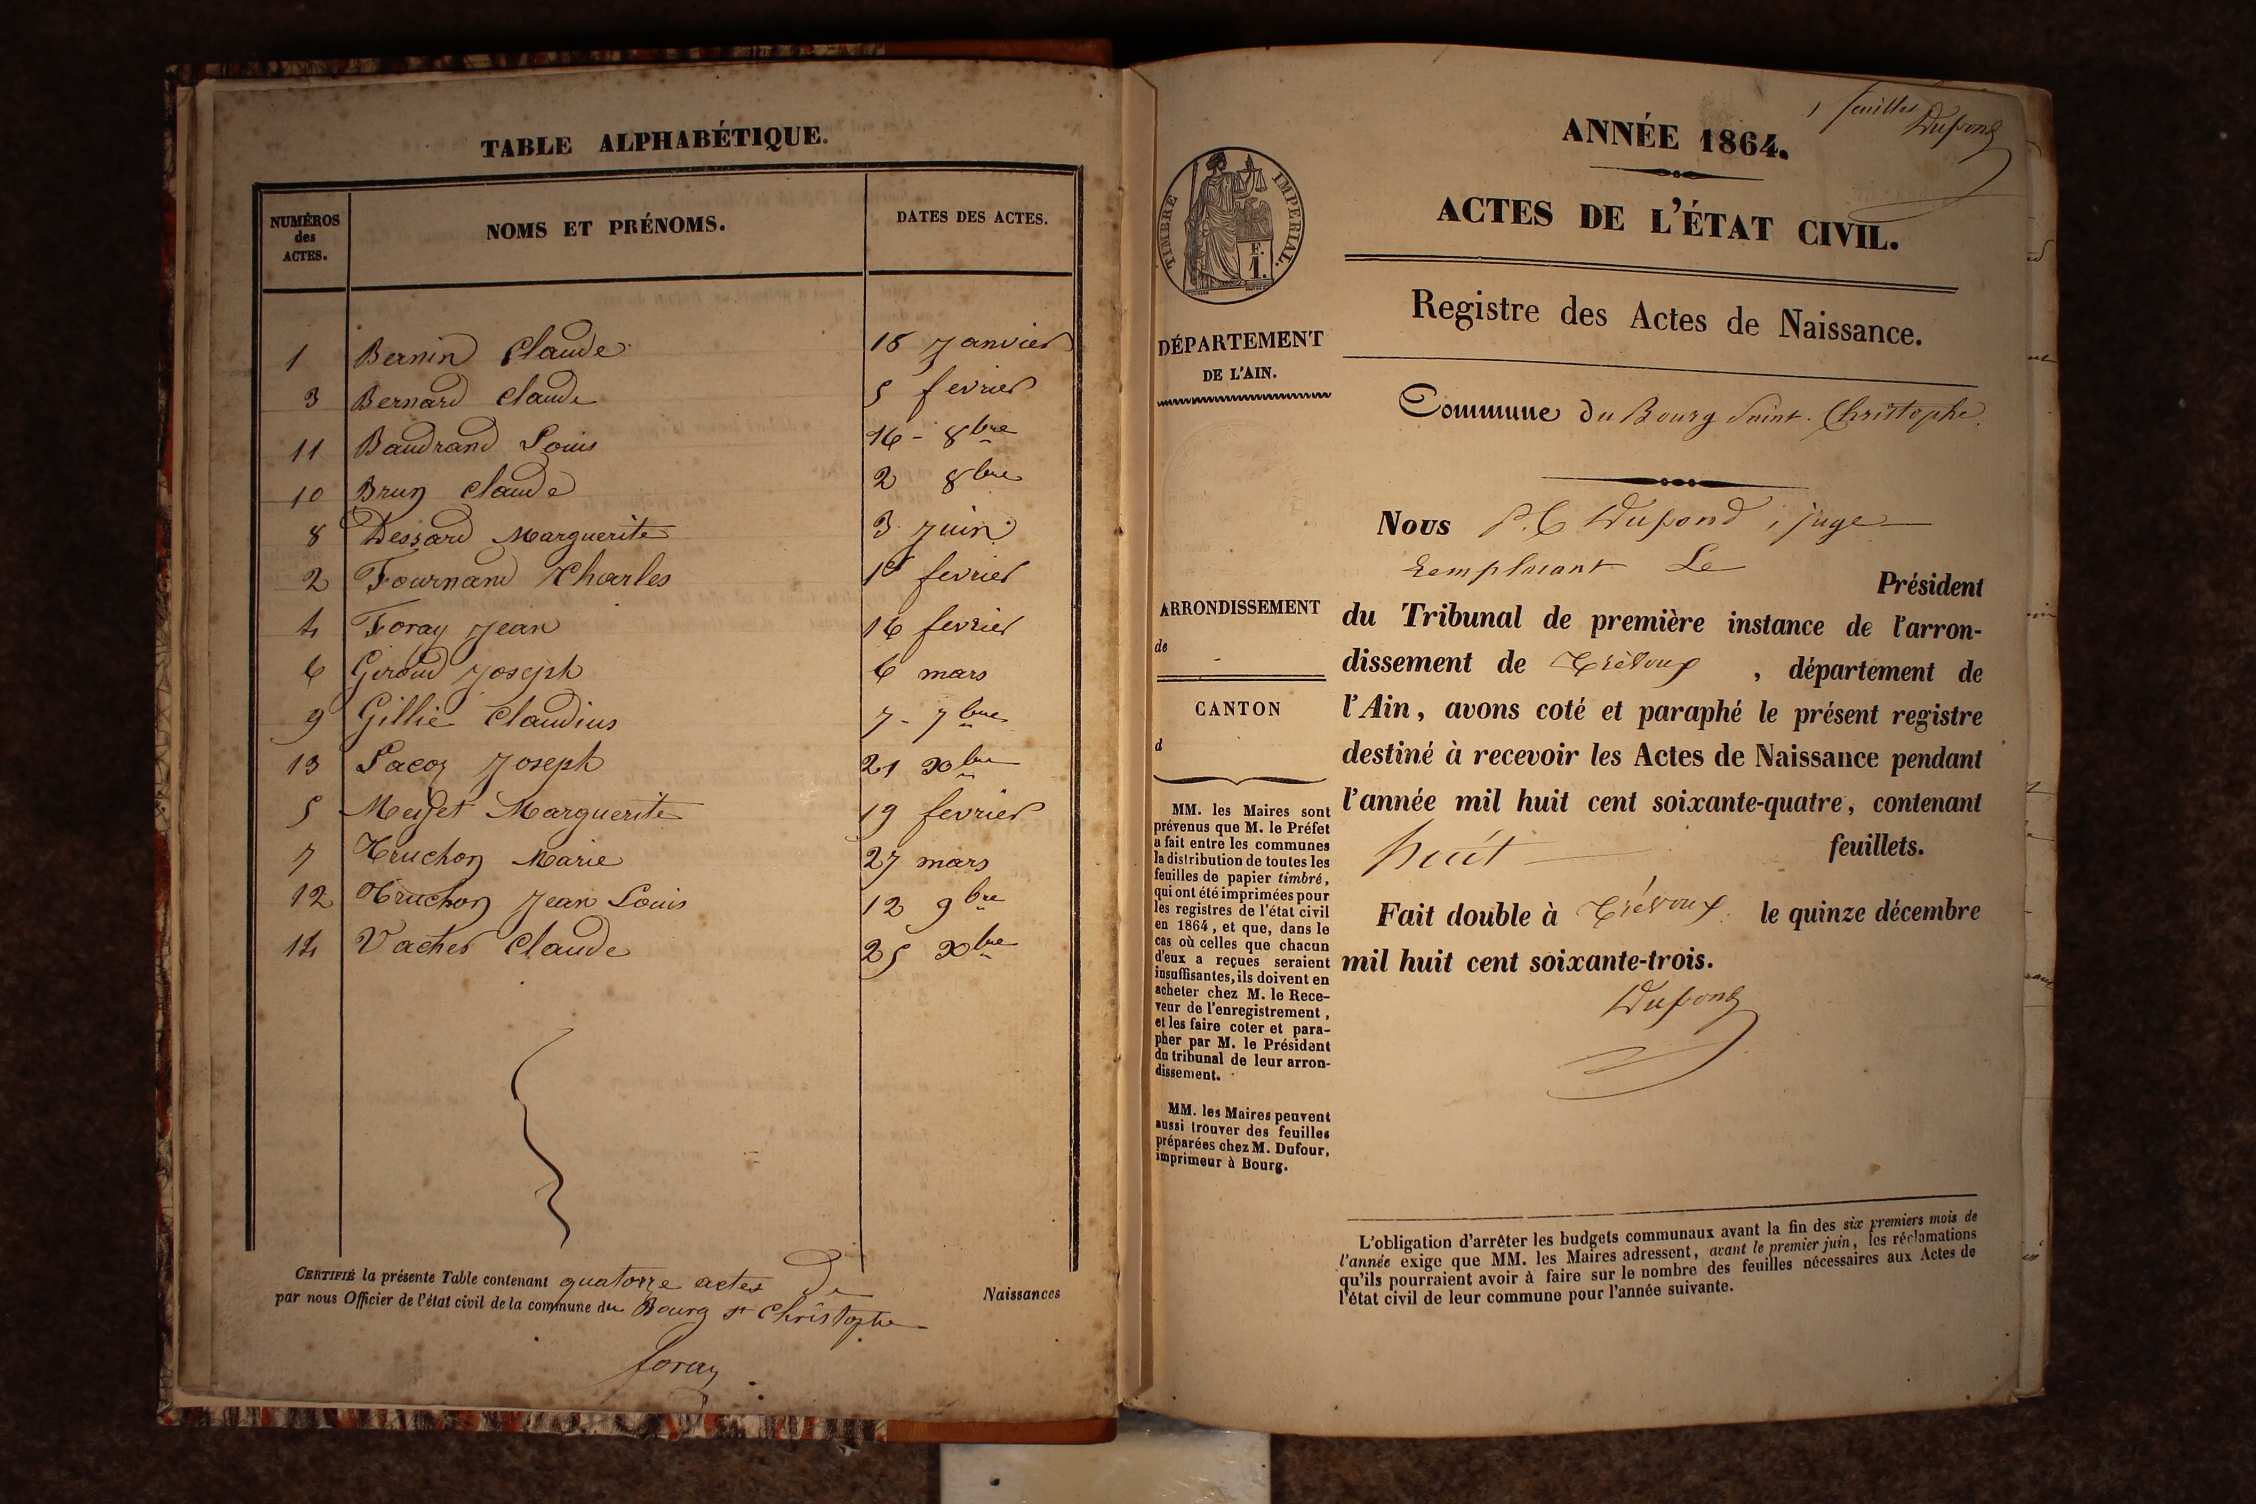 TABLE ALPHABÉTIQUE.
NUMÉROS des ACTES. NOMS ET PRÉNOMS. DATES DES ACTES.
1 Bernin Claude 18 Janvier
3 Bernard Claude 5 fevrier
11 Baudrand Louis 16 - 8bre
10 Brun Claude 2 8bre
8 Dessard Marguerite 3 Juin
2 Fournand Charles 1er fevrier
4 Foray Jean 16 fevrier
6 Giroud Joseph 6 mars
9 Gillie Claudius 7 - 7bre
13 Joseph 21 Xbre
5 Marguerite 19 fevrier
7 Truchon Marie 27 mars
12 Truchon Jean Louis 12 9bre
14 Vacher Claude 25 Xbre
CERTIFIÉ la présente Table contenant quatorze actes De Naissances
par nous Officier de l'état civil de la commune du Bourg St Christophe
foray
feuilles
Dupond
ANNÉE 1864.
ACTES DE L'ÉTAT CIVIL.
Registre des Actes de Naissance.
Commune du Bourg Saint. Christophe.
TIMBRE IMPERIAL.
F.
1.
DÉPARTEMENT
DE L'AIN.
ARRONDISSEMENT
de
CANTON
d
MM. les Maires sont
prévenus que M. le Préfet
a fait entre les communes
la distribution de toutes les
feuilles de papier timbré,
qui ont été imprimées pour
les registres de l'état civil
en 1864, et que, dans le
cas où celles que chacun
d'eux a reçues seraient
insuffisantes, ils doivent en
acheter chez M. le Rece-
veur de l'enregistrement,
et les faire coter et para-
pher par M. le Président
du tribunal de leur arron-
dissement.
MM. les Maires peuvent
aussi trouver des feuilles
préparées chez M. Dufour,
imprimeur à Bourg.
Nous P. C Dupond, juge
remplacant Le
Président
du Tribunal de première instance de l'arron-
dissement de Trévoux, département de
l'Ain, avons coté et paraphé le présent registre
destiné à recevoir les Actes de Naissance pendant
l'année mil huit cent soixante-quatre, contenant
huit feuillets.
Fait double à Trévoux le quinze décembre
mil huit cent soixante-trois.
Dupond
L'obligation d'arrêter les budgets communaux avant la fin des six premiers mois de
l'année exige que MM. les Maires adressent, avant le premier juin, les réclamations
qu'ils pourraient avoir à faire sur le nombre des feuilles nécessaires aux Actes de
l'état civil de leur commune pour l'année suivante.